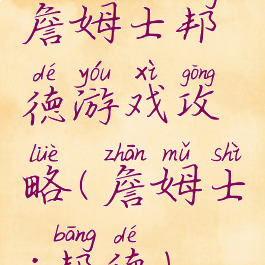 詹姆士邦
dé yóu xì gōng
德游戏攻
lüè zhān mǔ shì
略(詹姆士
bāng dé
·邦德)